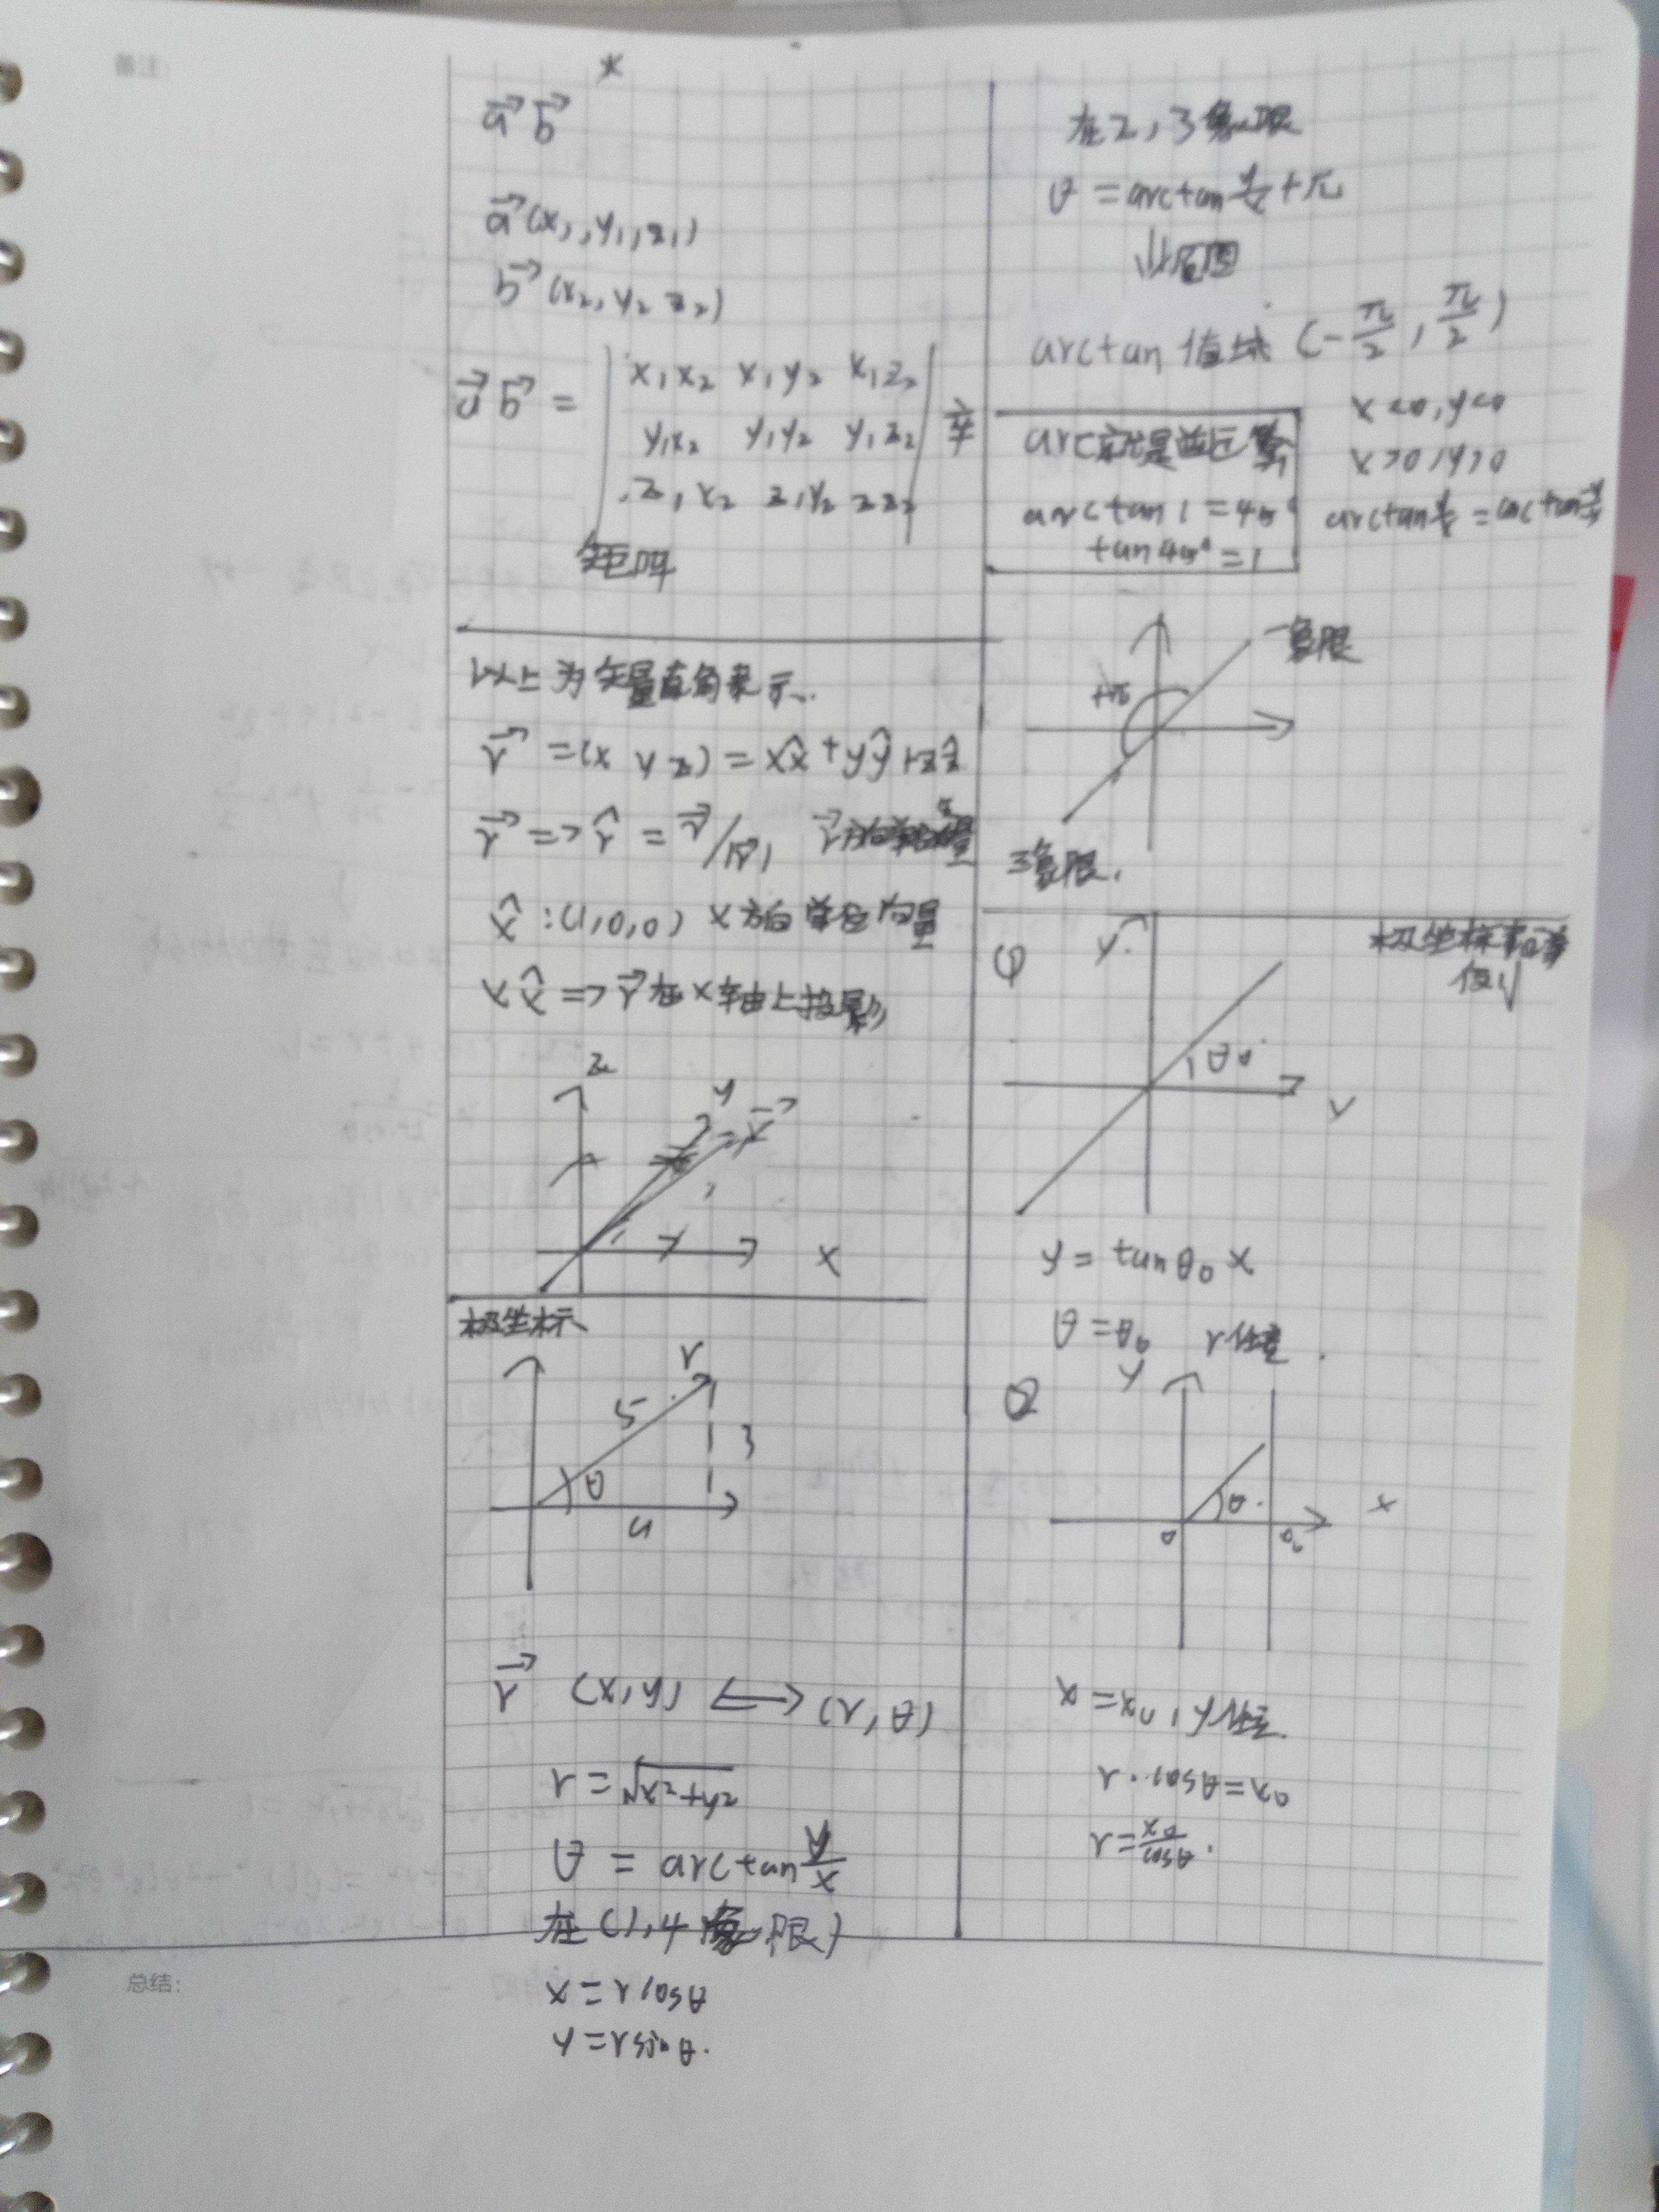 备注:
*
a⃗ b⃗
a⃗ (x₁, y₁, z₁)
b⃗ (x₂, y₂ z₂)
a⃗ b⃗ = | x₁x₂ x₁y₂ x₁z₂ |
y₁x₂ y₁y₂ y₁z₂
z₁x₂ z₁y₂ z z₂
矩阵
以上为矢量直角表示.
r⃗ = (x y z) = xx̂ + yŷ + zẑ
r⃗ => r̂ = r⃗/|r⃗|, r⃗方向单位
x̂ : (1,0,0) x方向单位向量
xx̂ => r⃗在x轴上投影
z
y
r⃗
x
极坐标
r
5
3
θ
4
r⃗ (x,y) ⟷ (r,θ)
r = √x²+y²
θ = arctan y/x
在(1,4象限)
x = r cosθ
y = r sinθ.
在2,3象限
θ = arctan y/x + π
⇓ 原因
arctan 值域 (-π/2, π/2)
x<0, y<0
x>0, y>0
arctan y/x = arctan -y/-x
arc就是逆运算
arctan 1 = 45°
tan 45° = 1
一象限
+π
三象限.
极坐标
①
y
θ₀
y = tanθ₀ x
θ = θ₀ r任意.
②
y
θ
x
0
x = x₀, y任意.
r·cosθ = x₀
r = x₀/cosθ.
总结: